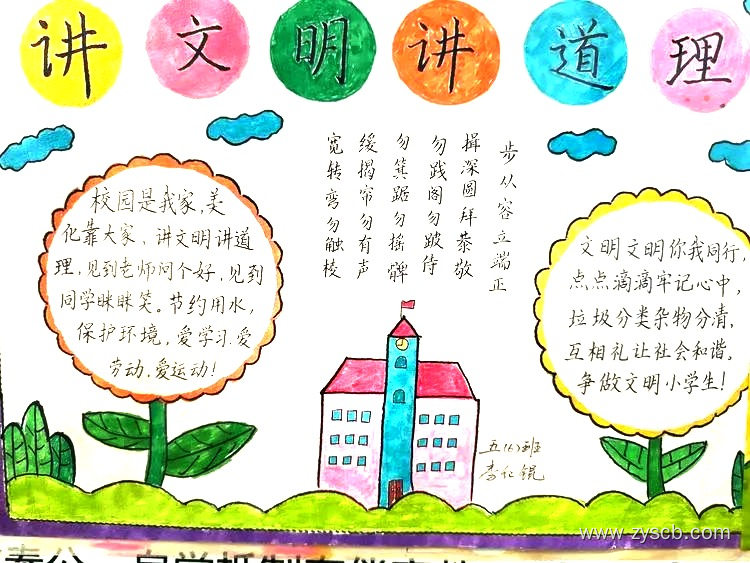 讲文明讲道理
校园是我家,美
化靠大家、讲文明讲道
理,见到老师问个好,见到
同学眯眯笑。节约用水,
保护环境,爱学习、爱
劳动、爱运动!
步从容立端正
揖深圆拜恭敬
勿践阁勿跛侍
勿箕踞勿摇髀
缓揭帘勿有声
宽转弯勿触棱
文明文明你我同行,
点点滴滴牢记心中,
垃圾分类杂物分清,
互相礼让社会和谐,
争做文明小学生!
五(6)班
李仁锟
www.zyscb.com